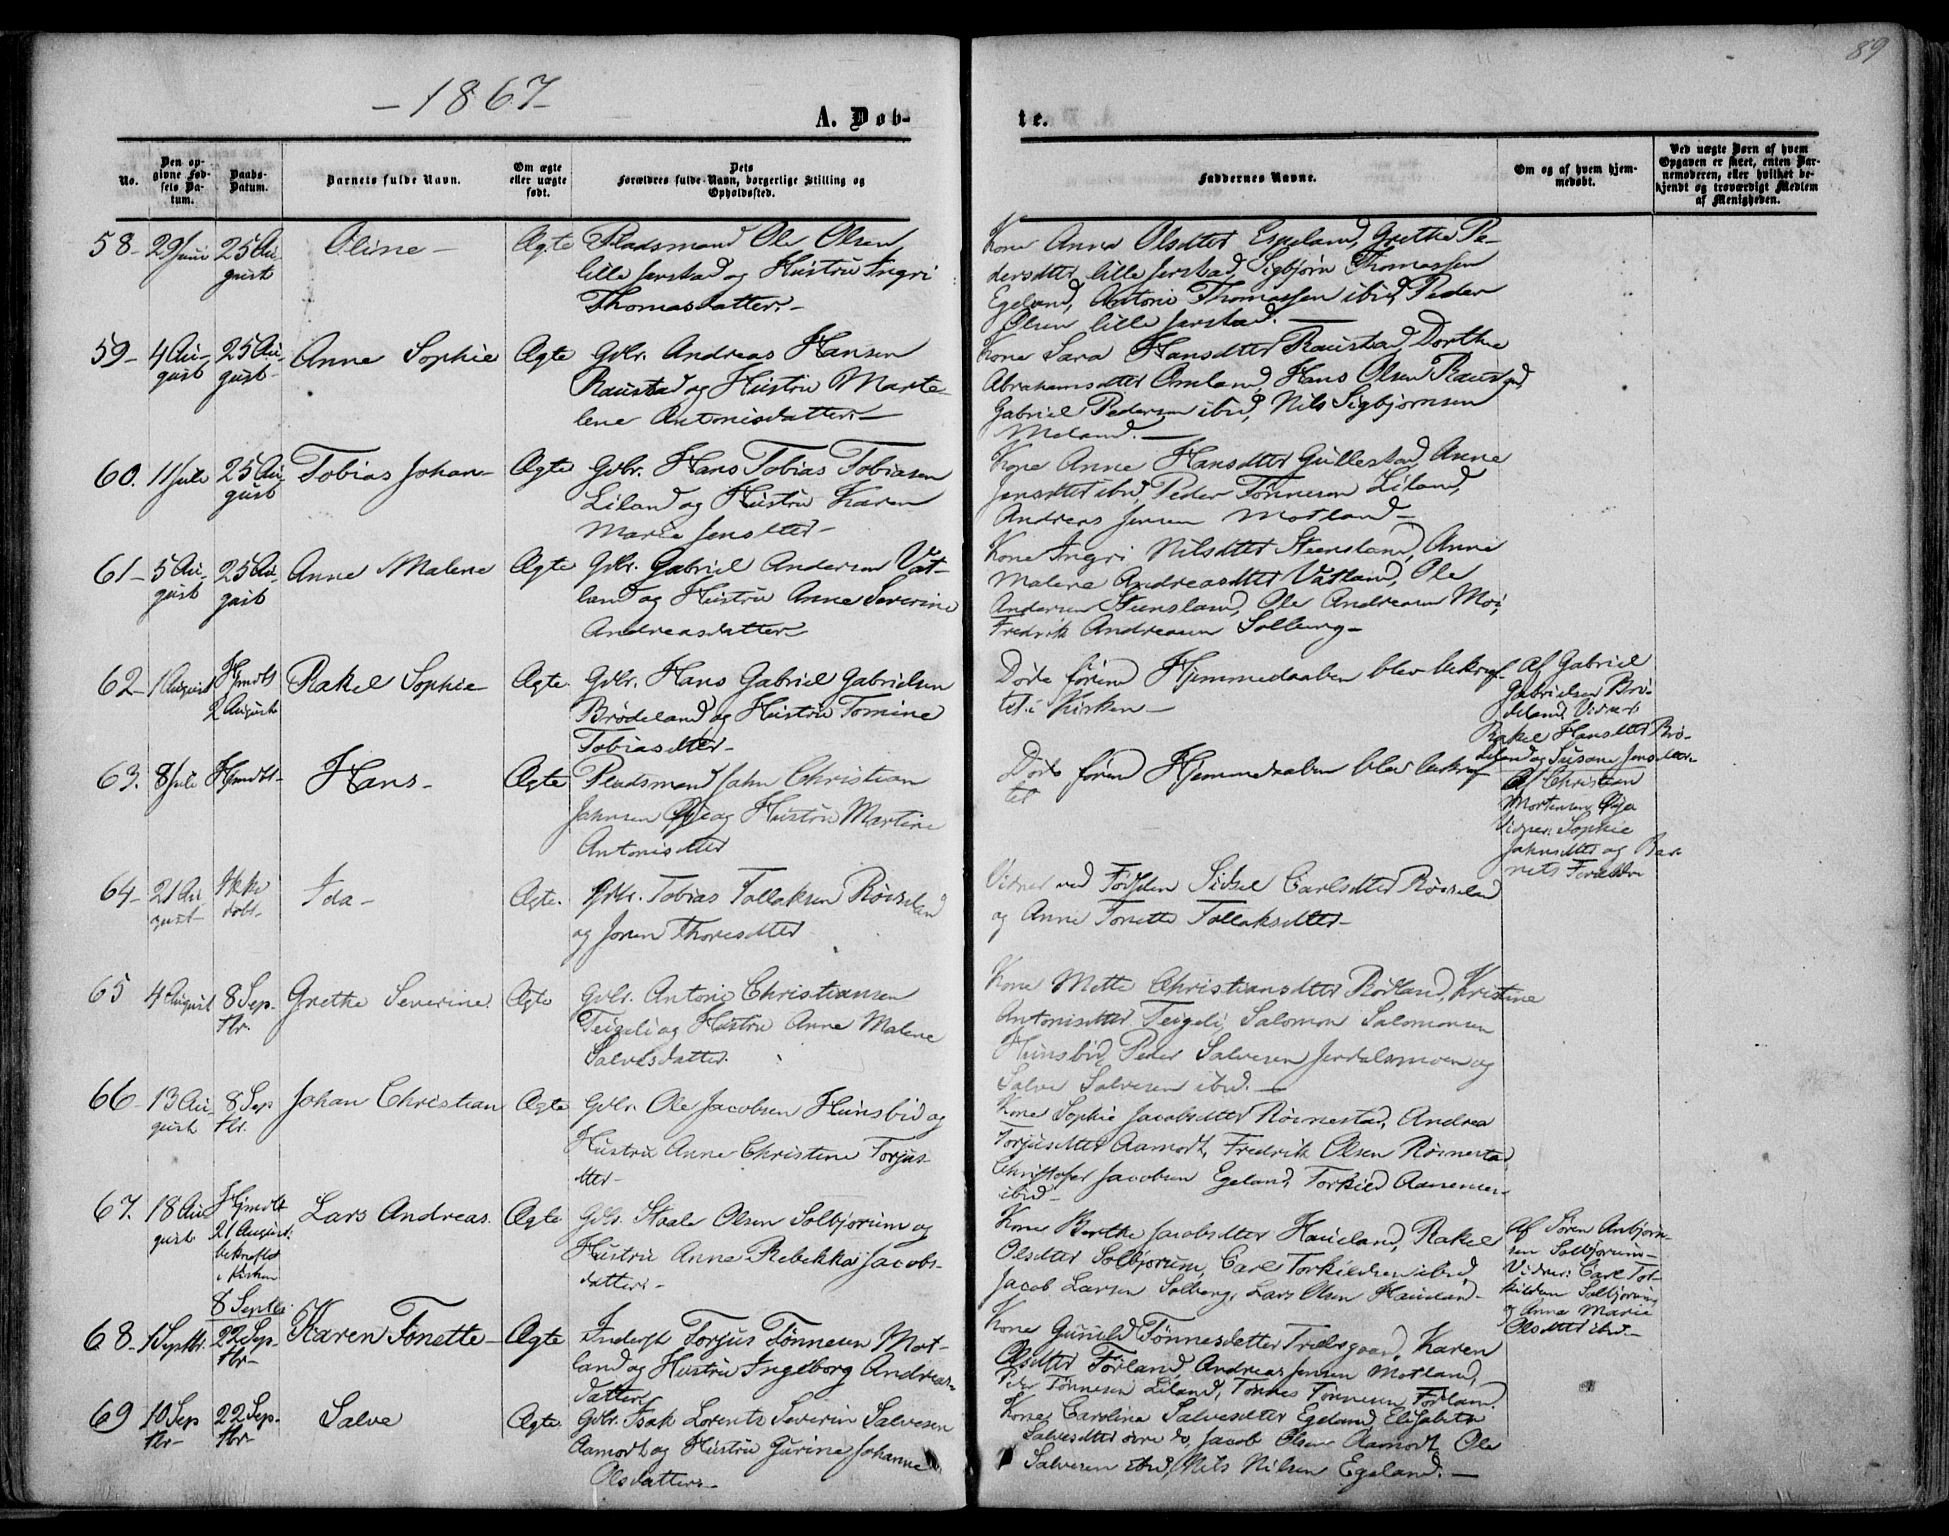 89
- 1867 -
A. Døb-
te.
No.
Den op-
givne Fød-
sels Da-
tum.
Daabs-
Datum.
Barnets fulde Navn.
Om ægte
eller uægte
født.
Dets
Forældres fulde Navn, borgerlige Stilling og
Opholdssted.
Faddernes Navne.
Om og af hvem hjem-
medøbt.
Ved uægte Børn af hvem
Opgaven er skeet, enten Bar-
nemoderen, eller hvilket be-
kjendt og troværdigt Medlem
af Menigheden.
58- 29 Juni 25 Au-
gust
Oline -
Ægte
Pladsmand Ole Olsen
lille Jerstad og Hustru Ingri
Thomasdatter.-
Kone Anna Olsdtter Espeland, Grethe Pe-
dersdtter lille Jerstad, Sigbjørn Thomassen
Egeland, Antoni Thomassen ibid, Peder
Olsen lille Jerstad. -
59- 4 Au-
gust
25 Au-
gust
Anne Sophie
Ægte
Gdbr. Andreas Hansen
Raustad og Hustru Marte-
lene Antonisdatter.-
Kone Sara Hansdtter Raustad, Dorthe
Abrahamsdtter Omland, Hans Olsen Raustad,
Gabriel Pedersen ibid, Nils Sigbjørnsen
Meland. -
60. 11 Juli 25 Au-
gust
Tobias Johan-
Ægte
Gdbr. Hans Tobias Tobiasen
Liland og Hustru Karen
Marie Jensdtter -
Kone Anne Hansdtter Gullestad, Anne
Jensdtter ibid, Peder Tønnesen Liland,
Andreas Jensen Motland -
61- 5 Au-
gust
25 Au-
gust
Anne Malene
Ægte
Gdbr. Gabriel Andersen Vat-
land og Hustru Anne Severine
Andreasdatter
Kone Ingri Nilsdtter Steensland, Anne
Malene Andreasdtter Vatland, Ole
Andersen Steensland, Ole Andreasen Moi,
Fredrik Andreasen Solberg -
62- 1 August Hjmdbt
2 August
Rakel Sophie-
Ægte.
Gdbr. Hans Gabriel Gabrielsen
Brødeland og Hustru Tomine
Tobiasdtter -
Døde førend Hjemmedaaben blev bekræf-
tet i Kirken -
Af Gabriel
Gabrielsen Brø-
deland, Vidner
Rakel Hansdtter Brø-
deland og Susane Jensdtter
63. 8 Juli Hjmdbt-
Hans -
Ægte
Pladsmand Jahn Christian
Jahnsen Øye og Hustru Martine
Antonisdtter
Døde førend Hjemmedaaben blev bekræf-
tet
Af Christian
Mortensen Øye
Vidner: Sophie
Jahnsdtter og Bar-
nets Forældre
64- 21 Au-
gust-
Ikke
døbt-
Ida -
Ægte.
Gdbr. Tobias Tallaksen Røiseland
og Joren Thoresdtter
Vidner ved Fødslen Sidsel Carlsdtter Røiseland
og Anne Tonette Tallaksdtter -
65 4 August 8 Sep-
tbr.
Grethe Severine.
Ægte
Gdbr. Antoni Christiansen
Teigeli og Hustru Anne Malene
Salvesdatter.
Kone Mette Christiansdtter Rødland, Kristine
Antonisdtter Teigeli, Salomon Salomonsen
Hunsbid, Peder Salvesen Jerdalsmoen og
Salve Salvesen ibid. -
66- 13 Au-
gust
8 Sep
tbr.
Johan Christian
Ægte
Gdbr. Ole Jacobsen Hunsbid og
Hustru Anne Christine Torjus-
dtter -
Kone Sophie Jacobsdtter Røinestad, Andrea
Torjusdtter Aamodt, Fredrik Olsen Røinestad
Christofer Jacobsen Egeland, Torkild Aanensen
ibid -
67. 18 Au
gust
Hjmdbt
21 August:
bekræftet
i Kirken
8 Septbr.
Lars Andreas.
Ægte
Gdbr. Staale Olsen Solbjorum og
Hustru Anne Rebekka Jacobs-
datter -
Kone Berthe Jacobsdtter Haueland, Rakel
Olsdtter Solbjorum, Carl Torkildsen ibid,
Jacob Larsen Solberg, Lars Olsen Haueland -
Af Søren Anbjørn-
sen Solbjorum -
Vidner: Carl Tor-
kildsen Solbjorum
og Anna Marie
Olsdtter ibid -
68- 1 Septbr. 22 Sep-
tbr -
Karen Tonette -
Ægte
Inderst Torjus Tønnesen Mot-
land og Hustru Ingeborg Andreas-
datter
Kone Gunild Tønnesdatter Tredesgaard, Karen
Olsdtter Førland, Andreas Jensen Motland,
Peder Tønnesen Liland, Tønnes Tønnesen Førland.
69 10 Sep
tbr -
22 Sep-
tbr -
Salve
Ægte
Gdbr. Isak Lorentz Severin Salvesen
Aamodt og Hustru Gurine Johanne
Olsdatter -
Kone Caroline Salvesdtter Egeland, Elisabeth
Salvesdtter øvre do, Jacob Olsen Aamodt, Ole
Salvesen ibid, Nils Nilsen Egeland. -